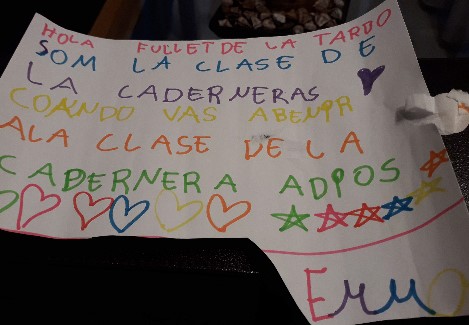 HOLA FULLET DE LA TARDO
SOM LA CLASE DE
LA CADERNERAS
COANDO VAS ABENIR
ALA CLASE DE LA
CADERNERA ADPOS